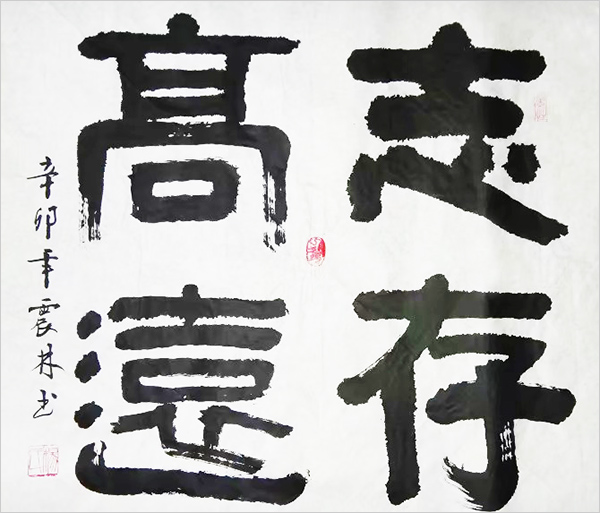 志存
高遠
辛卯年震林书